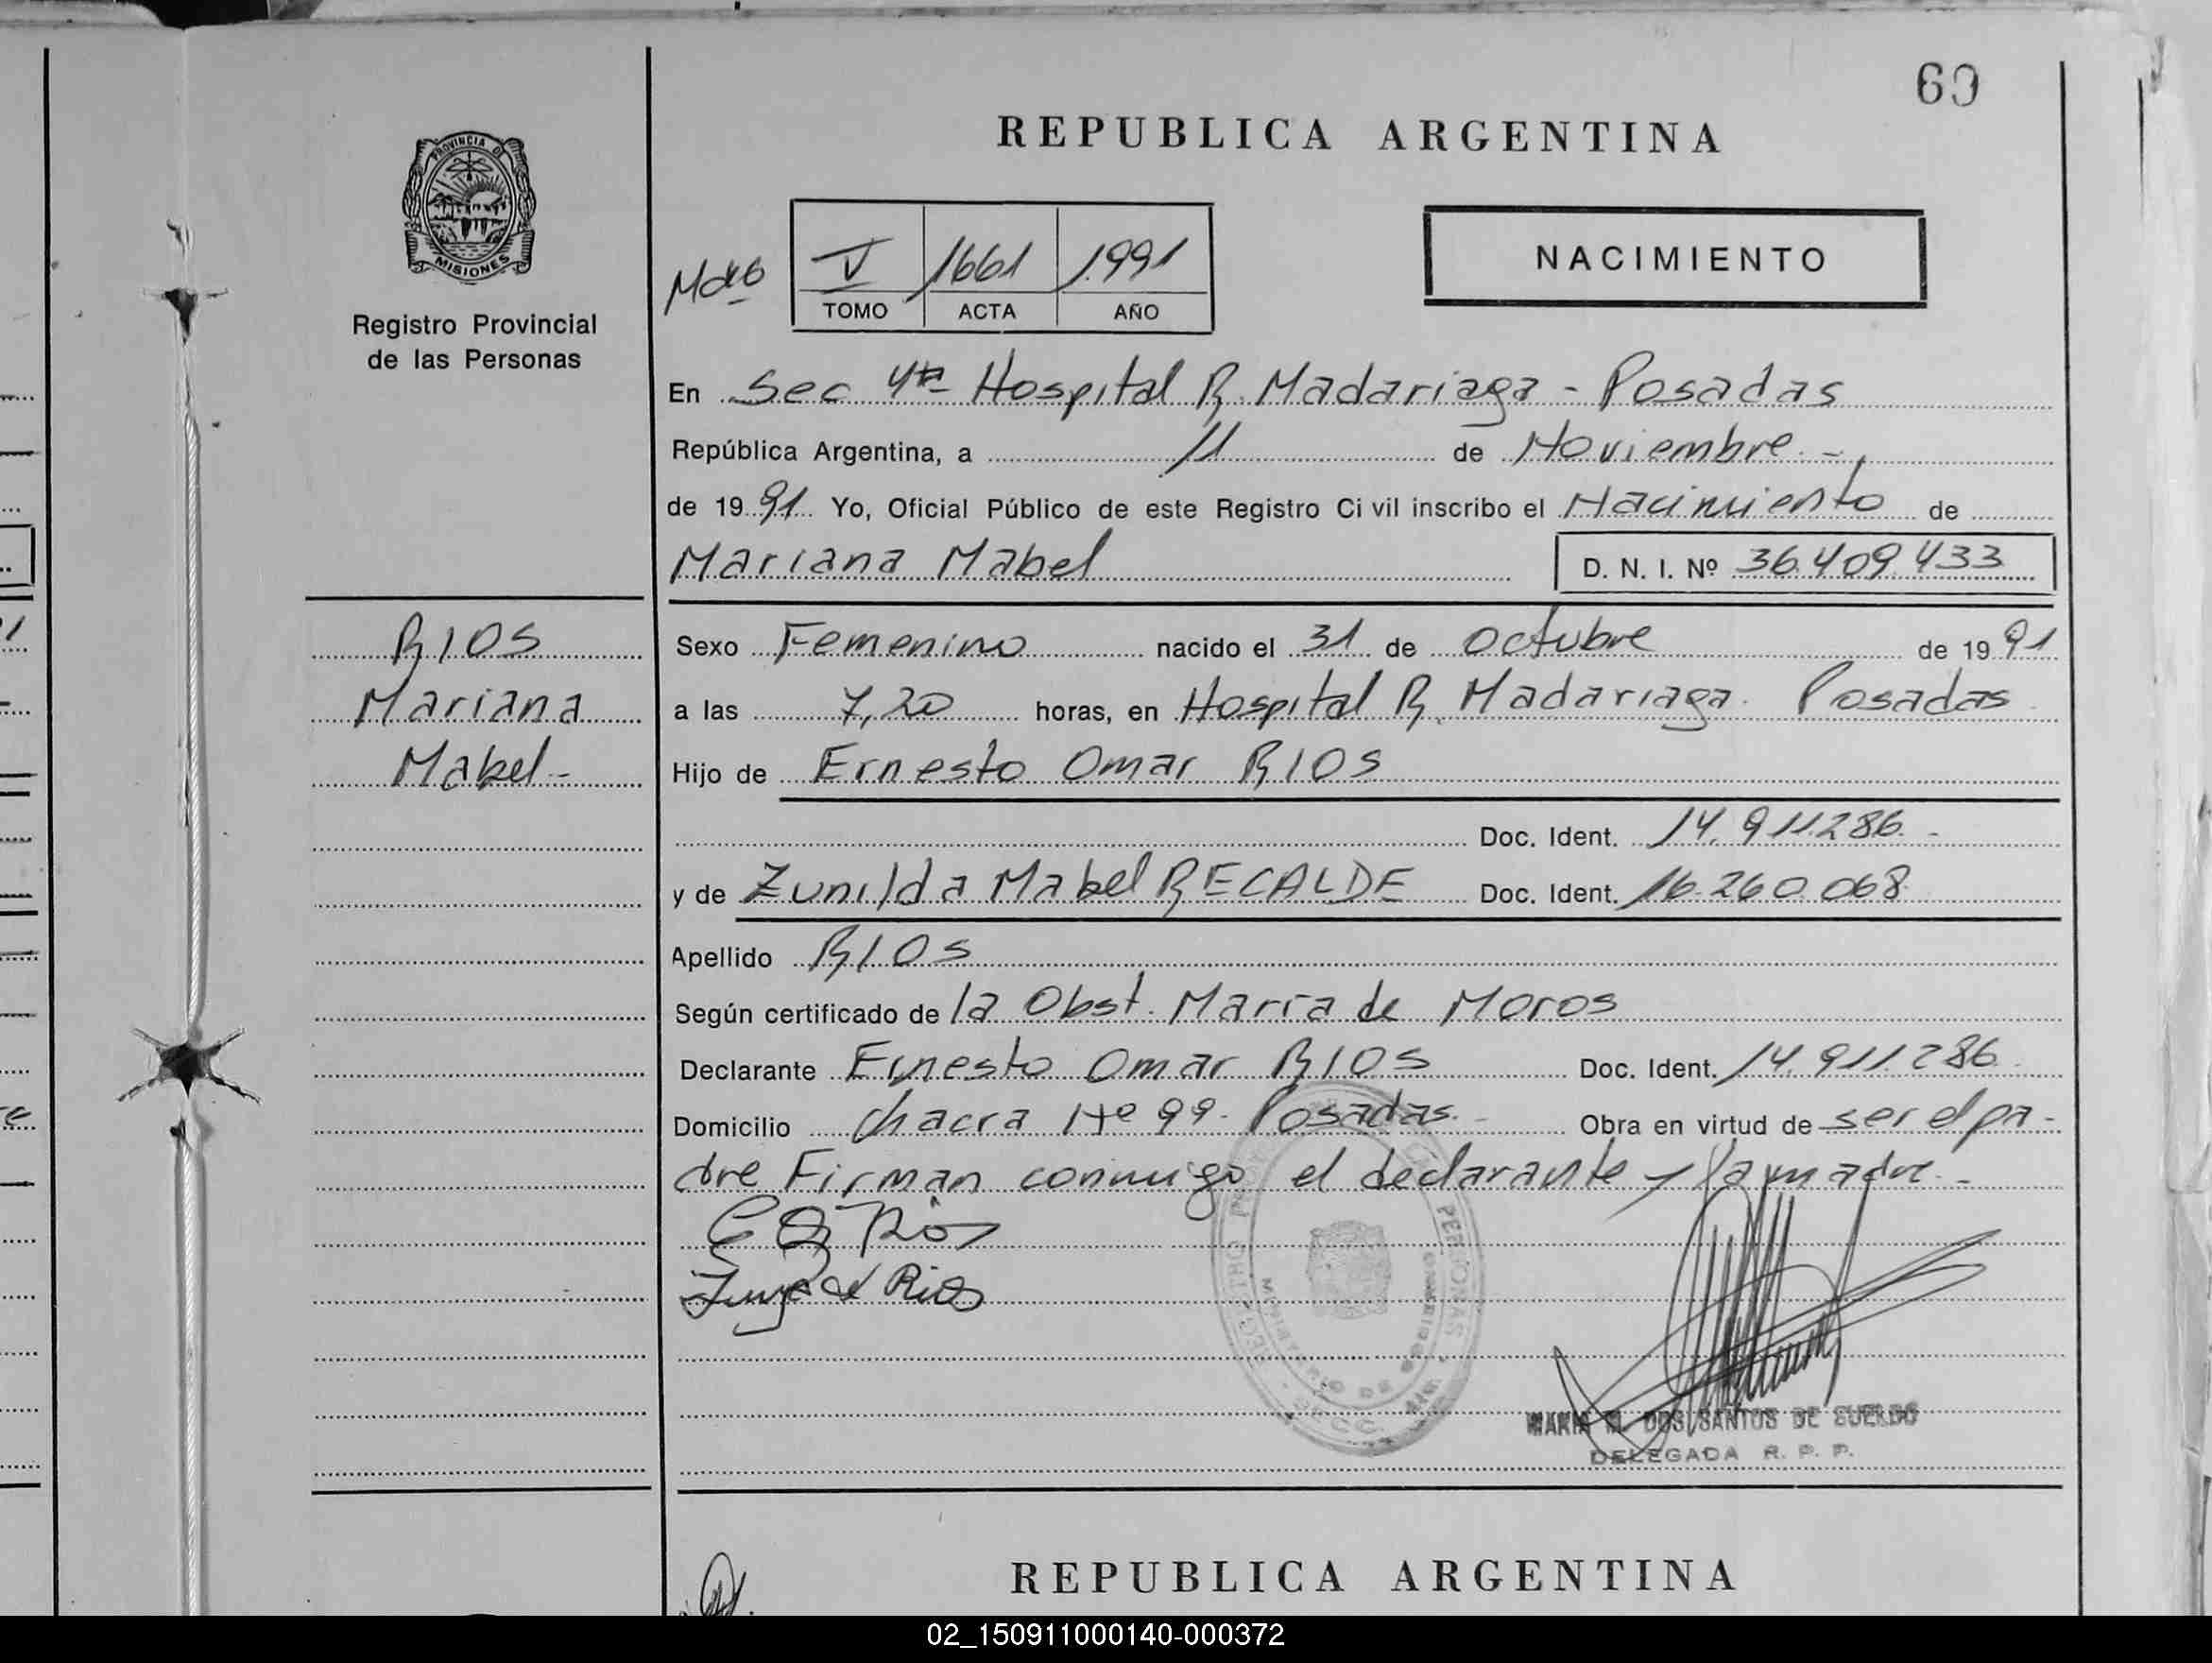 60
REPUBLICA ARGENTINA
PROVINCIA DE
MISIONES
Registro Provincial
de las Personas
V 1661 1991
TOMO ACTA AÑO
NACIMIENTO
En Sec 4ta Hospital R. Madariaga - Posadas
República Argentina, a 11 de Noviembre -
de 1991 Yo, Oficial Público de este Registro Civil inscribo el Nacimiento de
Mariana Mabel D. N. I. Nº 36.409.433
RIOS
Mariana
Mabel -
Sexo Femenino nacido el 31 de Octubre de 1991
a las 7,20 horas, en Hospital R. Madariaga. Posadas
Hijo de Ernesto Omar RIOS
Doc. Ident. 14.911.286. -
y de Zunilda Mabel RECALDE Doc. Ident. 16.260.068
Apellido RIOS
Según certificado de la Obst. María de Moros
Declarante Ernesto Omar RIOS Doc. Ident. 14.911.286
Domicilio Chacra Nº 99 - Posadas. - Obra en virtud de ser el pa-
dre Firman conmigo el declarante y la madre. -
Rios
Rios
MARIA M. DOS SANTOS DE SUELDO
DELEGADA R. P. P.
REPUBLICA ARGENTINA
02_150911000140-000372